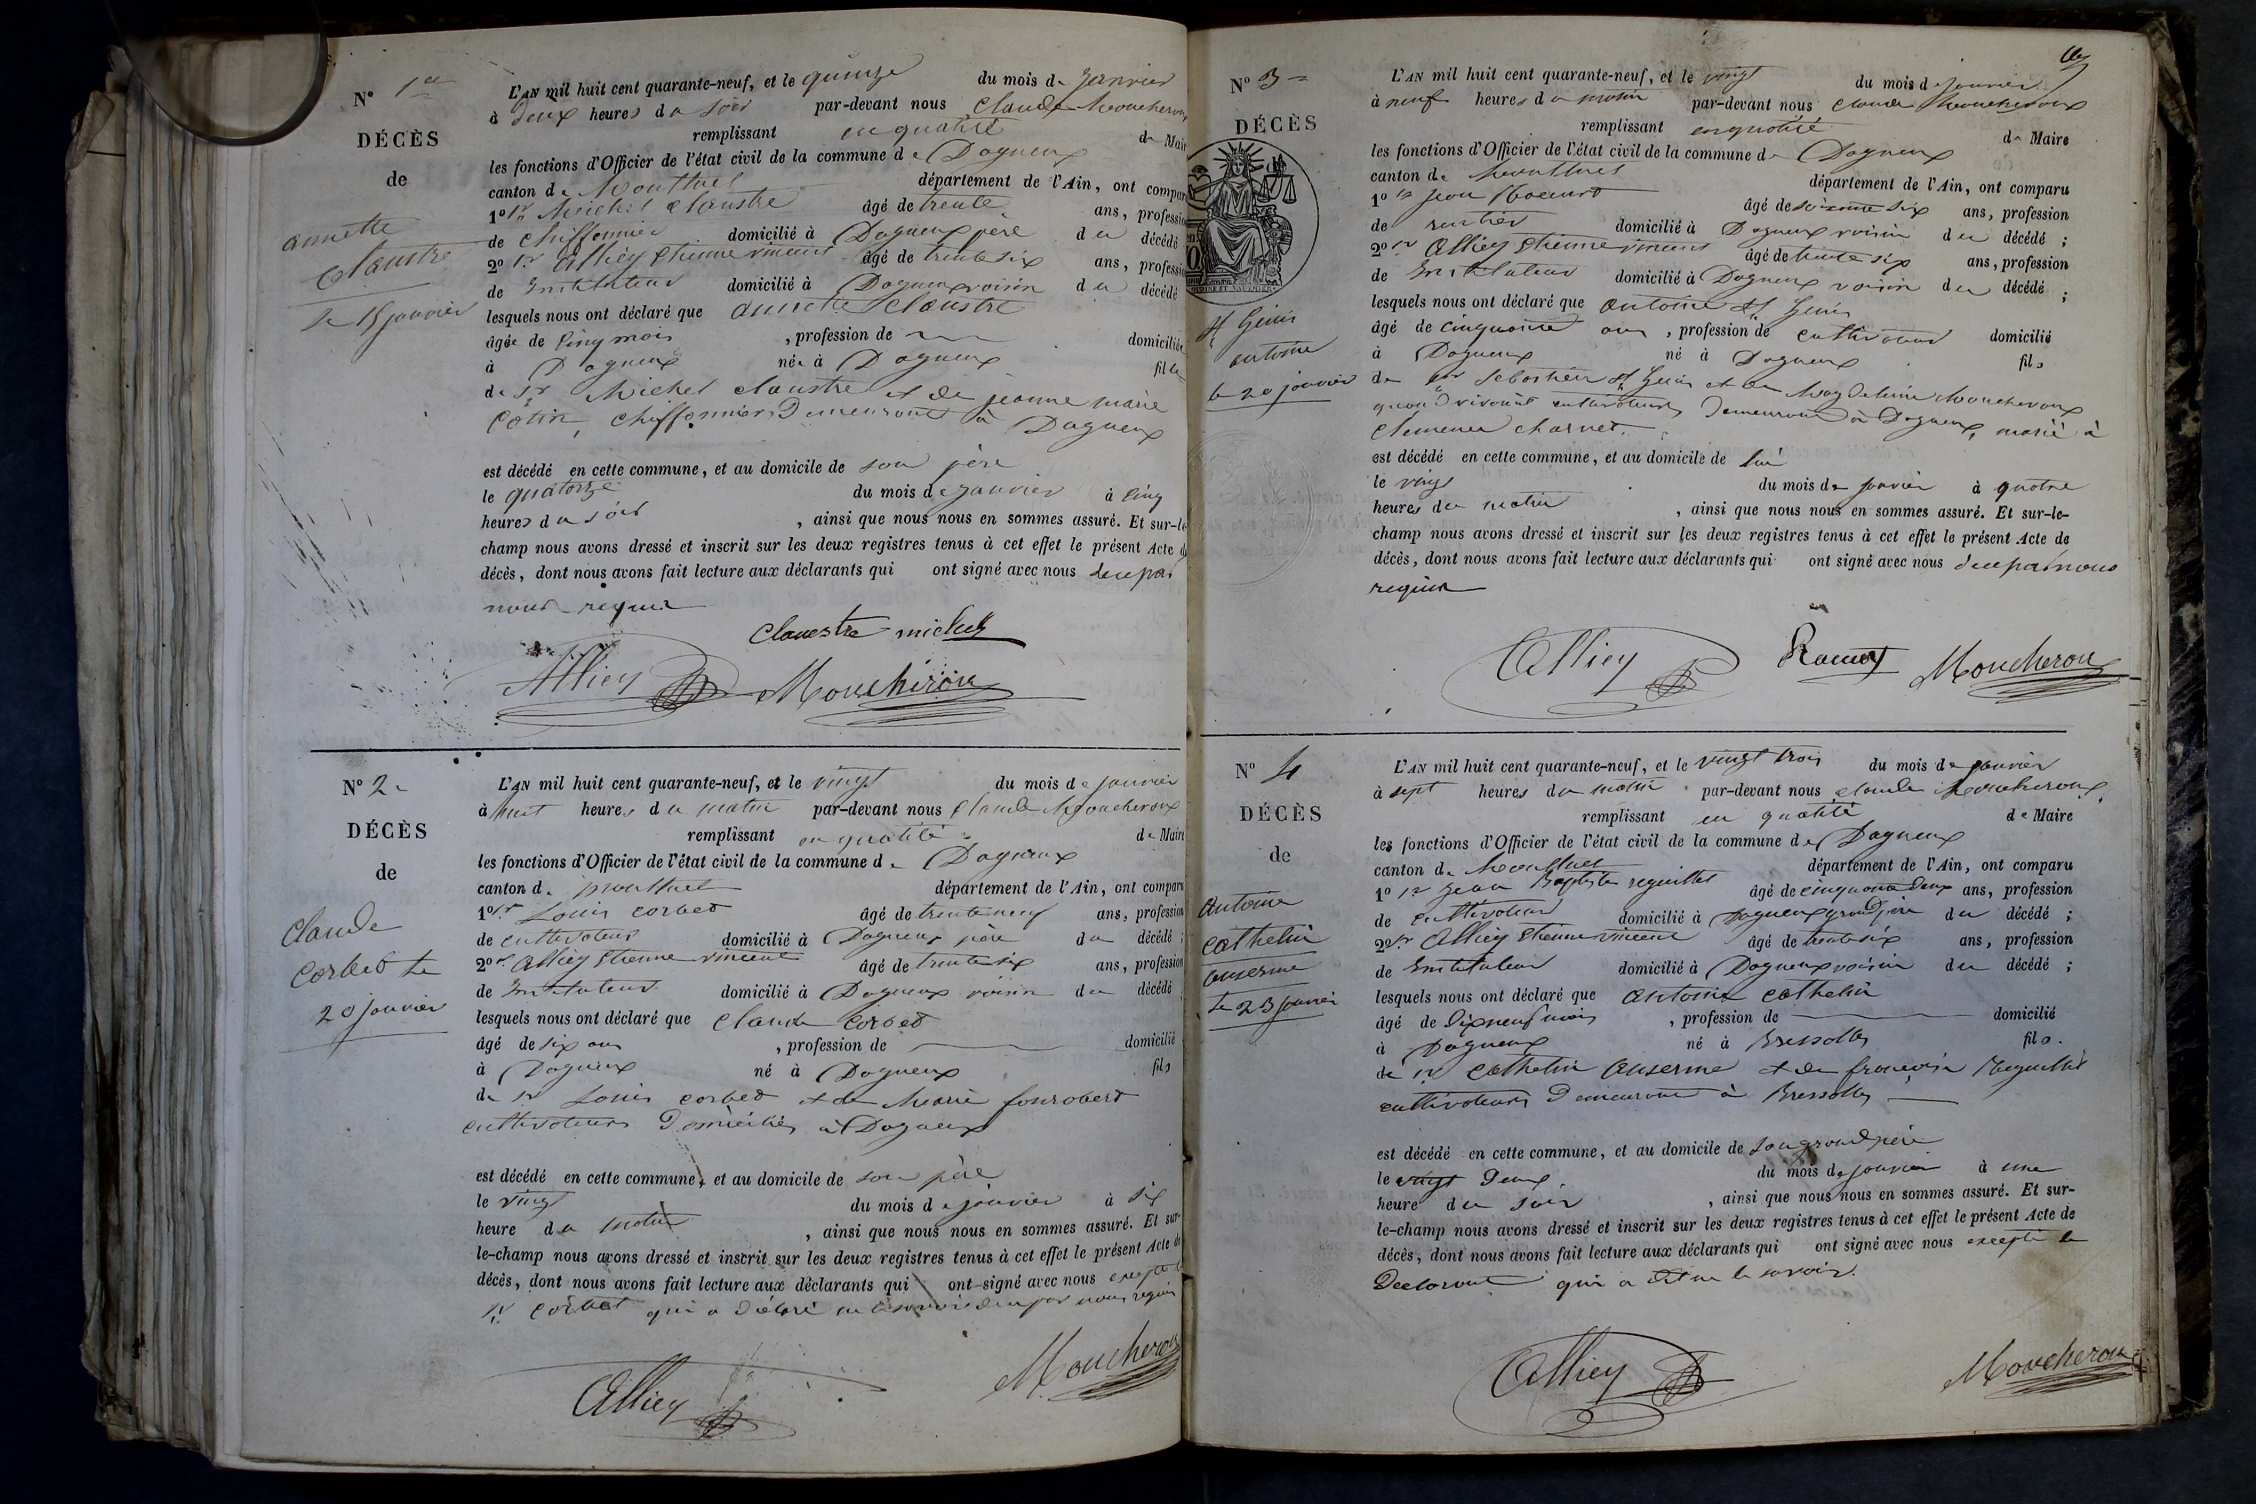 N° 1er
DÉCÈS
de
annette
Claustre
le 15 janvier
L'AN mil huit cent quarante-neuf, et le quinze du mois de Janvier
à deux heures du soir par-devant nous Claude Moucheron
remplissant en qualité de Maire
les fonctions d'Officier de l'état civil de la commune de Dagneux
canton de Montluel département de l'Ain, ont comparu
1° sr Michel Claustre âgé de trente ans, profession
de chiffonnier domicilié à Dagneux père du décédé
2° sr Alliey Etienne vincent âgé de trente six ans, profession
de Instituteur domicilié à Dagneux voisin du décédé
lesquels nous ont déclaré que annette Claustre
âgée de cinq mois , profession de domiciliée
à Dagneux née à Dagneux fille
de sr Michel Claustre et de jeanne marie
Cotin, chiffonniers Demeurant à Dagneux
est décédé en cette commune, et au domicile de son père
le quatorze du mois de janvier à cinq
heures du soir , ainsi que nous nous en sommes assuré. Et sur-le
champ nous avons dressé et inscrit sur les deux registres tenus à cet effet le présent Acte d
décès, dont nous avons fait lecture aux déclarants qui ont signé avec nous de ce par
nous requis
Clauestre michel
Alliey Moucheron
N° 2
DÉCÈS
de
Claude
Corbet le
20 janvier
L'AN mil huit cent quarante-neuf, et le vingt du mois de janvier
à huit heures du matin par-devant nous Claude Moucheron
remplissant en qualité de Maire
les fonctions d'Officier de l'état civil de la commune de Dagneux
canton de montluel département de l'Ain, ont comparu
1° sr Louis corbet âgé de trente neuf ans, profession
de cultivateur domicilié à Dagneux père du décédé ;
2° sr Alliey Etienne vincent âgé de trente six ans, profession
de Instituteur domicilié à Dagneux voisin du décédé
lesquels nous ont déclaré que Claude Corbet
âgé de six ans , profession de domicilié
à Dagneux né à Dagneux fils
de sr Louis corbet et de Marie fonrobert
cultivateurs Domiciliés à Dagneux
est décédé en cette commune, et au domicile de son père
le vingt du mois de janvier à six
heure du matin , ainsi que nous nous en sommes assuré. Et sur-
le-champ nous avons dressé et inscrit sur les deux registres tenus à cet effet le présent Acte de
décès, dont nous avons fait lecture aux déclarants qui ont signé avec nous excepté le
sr corbet qui a Déclaré ne le savoir de ce par nous requis
Alliey Moucheron
N° 3
DÉCÈS
St Genis
antoine
le 20 janvier
L'AN mil huit cent quarante-neuf, et le vingt du mois de janvier
à neuf heures du matin par-devant nous Claude Moucheron
remplissant en qualité de Maire
les fonctions d'Officier de l'état civil de la commune de Dagneux
canton de Montluel département de l'Ain, ont comparu
1° sr Jean âgé de soixante six ans, profession
de rentier domicilié à Dagneux voisin du décédé ;
2° sr Alliey Etienne vincent âgé de trente six ans, profession
de Instituteur domicilié à Dagneux voisin du décédé ;
lesquels nous ont déclaré que antoine St Genis
âgé de cinquante ans , profession de cultivateur domicilié
à Dagneux né à Dagneux fils
de sr Sebastien St Genis et de Magdeleine Moucheroux
quand vivaient cultivateurs Demeurant à Dagneux, marié à
Clemence charvet.
est décédé en cette commune, et au domicile de lui
le vingt du mois de janvier à quatre
heures du matin , ainsi que nous nous en sommes assuré. Et sur-le-
champ nous avons dressé et inscrit sur les deux registres tenus à cet effet le présent Acte de
décès, dont nous avons fait lecture aux déclarants qui ont signé avec nous de ce par nous
requis
Alliey Moucheron
N° 4
DÉCÈS
de
Antoine
Cathelin
anserme
le 23 janvier
L'AN mil huit cent quarante-neuf, et le vingt trois du mois de janvier
à sept heures du matin par-devant nous Claude Moucheron
remplissant en qualité de Maire
les fonctions d'Officier de l'état civil de la commune de Dagneux
canton de Montluel département de l'Ain, ont comparu
1° sr Jean Baptiste reguillet âgé de cinquante deux ans, profession
de cultivateur domicilié à Dagneux grand père du décédé ;
2° sr Alliey Etienne vincent âgé de trente six ans, profession
de Instituteur domicilié à Dagneux voisin du décédé ;
lesquels nous ont déclaré que antoine Cathelin
âgé de Dix neuf mois , profession de domicilié
à Dagneux né à Bressolles fils.
de sr Cathelin Anserme et de francoise Reguillet
cultivateurs Demeurant à Bressolles
est décédé en cette commune, et au domicile de son grand père
le vingt Deux du mois de janvier à une
heure du soir , ainsi que nous nous en sommes assuré. Et sur-
le-champ nous avons dressé et inscrit sur les deux registres tenus à cet effet le présent Acte de
décès, dont nous avons fait lecture aux déclarants qui ont signé avec nous excepté le
Declarant qui a dit ne le savoir.
Alliey Moucheron